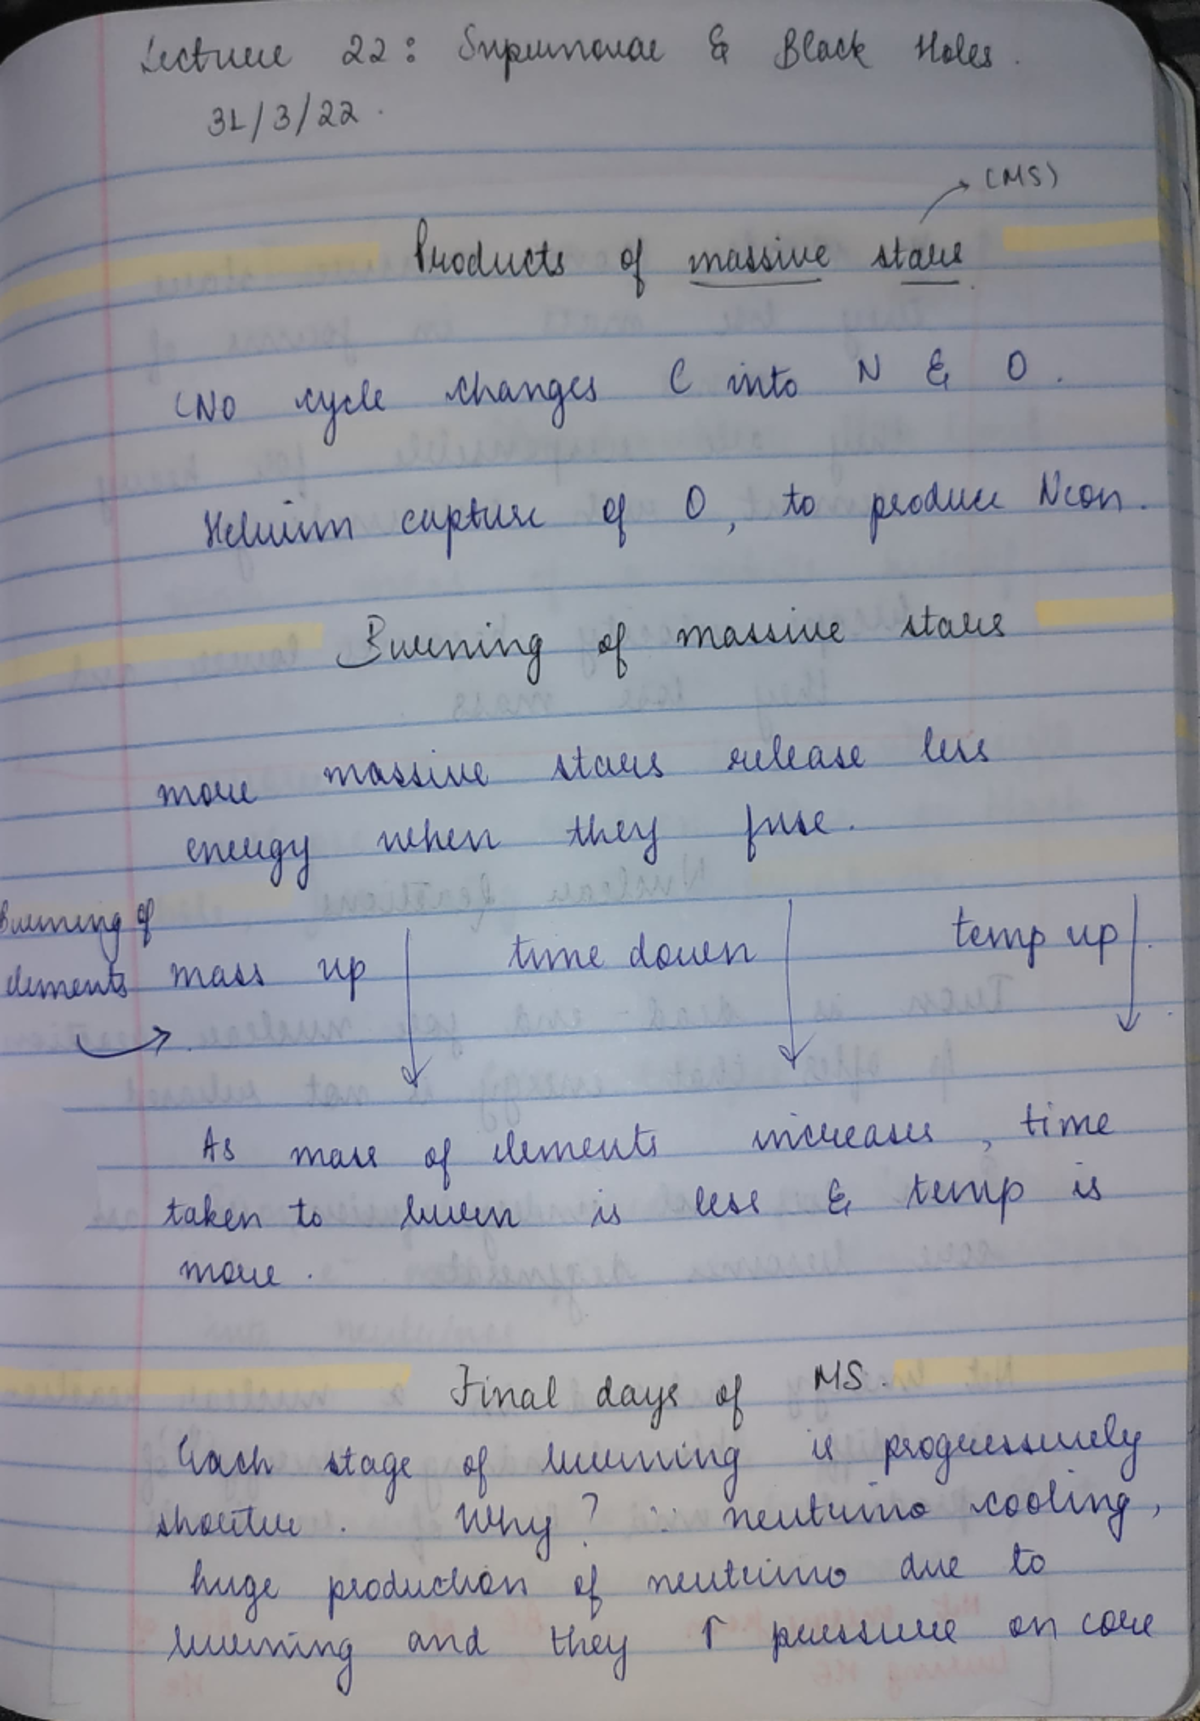 Lecture 22: Supernovae & Black Holes.
31/3/22.
(MS)
Products of massive stars.
CNO cycle changes C into N & O.
Helium capture of O, to produce Neon.
Burning of massive stars
more massive stars release less
energy when they fuse.
Burning of
elements mass up ↓ time down ↓ temp up ↓.
As mass of elements increases, time
taken to burn is less & temp is
more.
Final days of MS.
Each stage of burning is progressively
shorter. Why? ∵ neutrino cooling,
huge production of neutrino due to
burning and they ↑ pressure on core